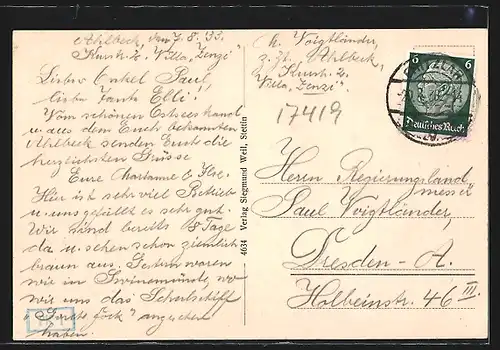 Ahlbeck, den 7.8.33.
Kurstr. 2. Villa „Zenzi"
Lieber Onkel Paul,
liebe Tante Elli!
Vom schönen Ostseestrand
u. aus dem Euch bekannten
Ahlbeck senden Euch die
herzlichsten Grüsse
Eure Marianne & Ilse.
Hier ist sehr viel Betrieb
u. uns gefällt es sehr gut.
Wir sind bereits 8 Tage
da u. sehen schon ziemlich
braun aus. Gestern waren
wir in Swinemünde, wo
wir uns das Schulschiff
„Gorch Fock" angesehen
haben.
4634 Verlag Siegmund Weil, Stettin
Voigtländer,
z. Zt. Ahlbeck,
Kurstr. 2.
Villa „Zenzi"
17419
6 6
Deutsches Reich
Herrn Regierungsland
messer
Paul Voigtländer,
Dresden-A.
Holbeinstr. 46 III.